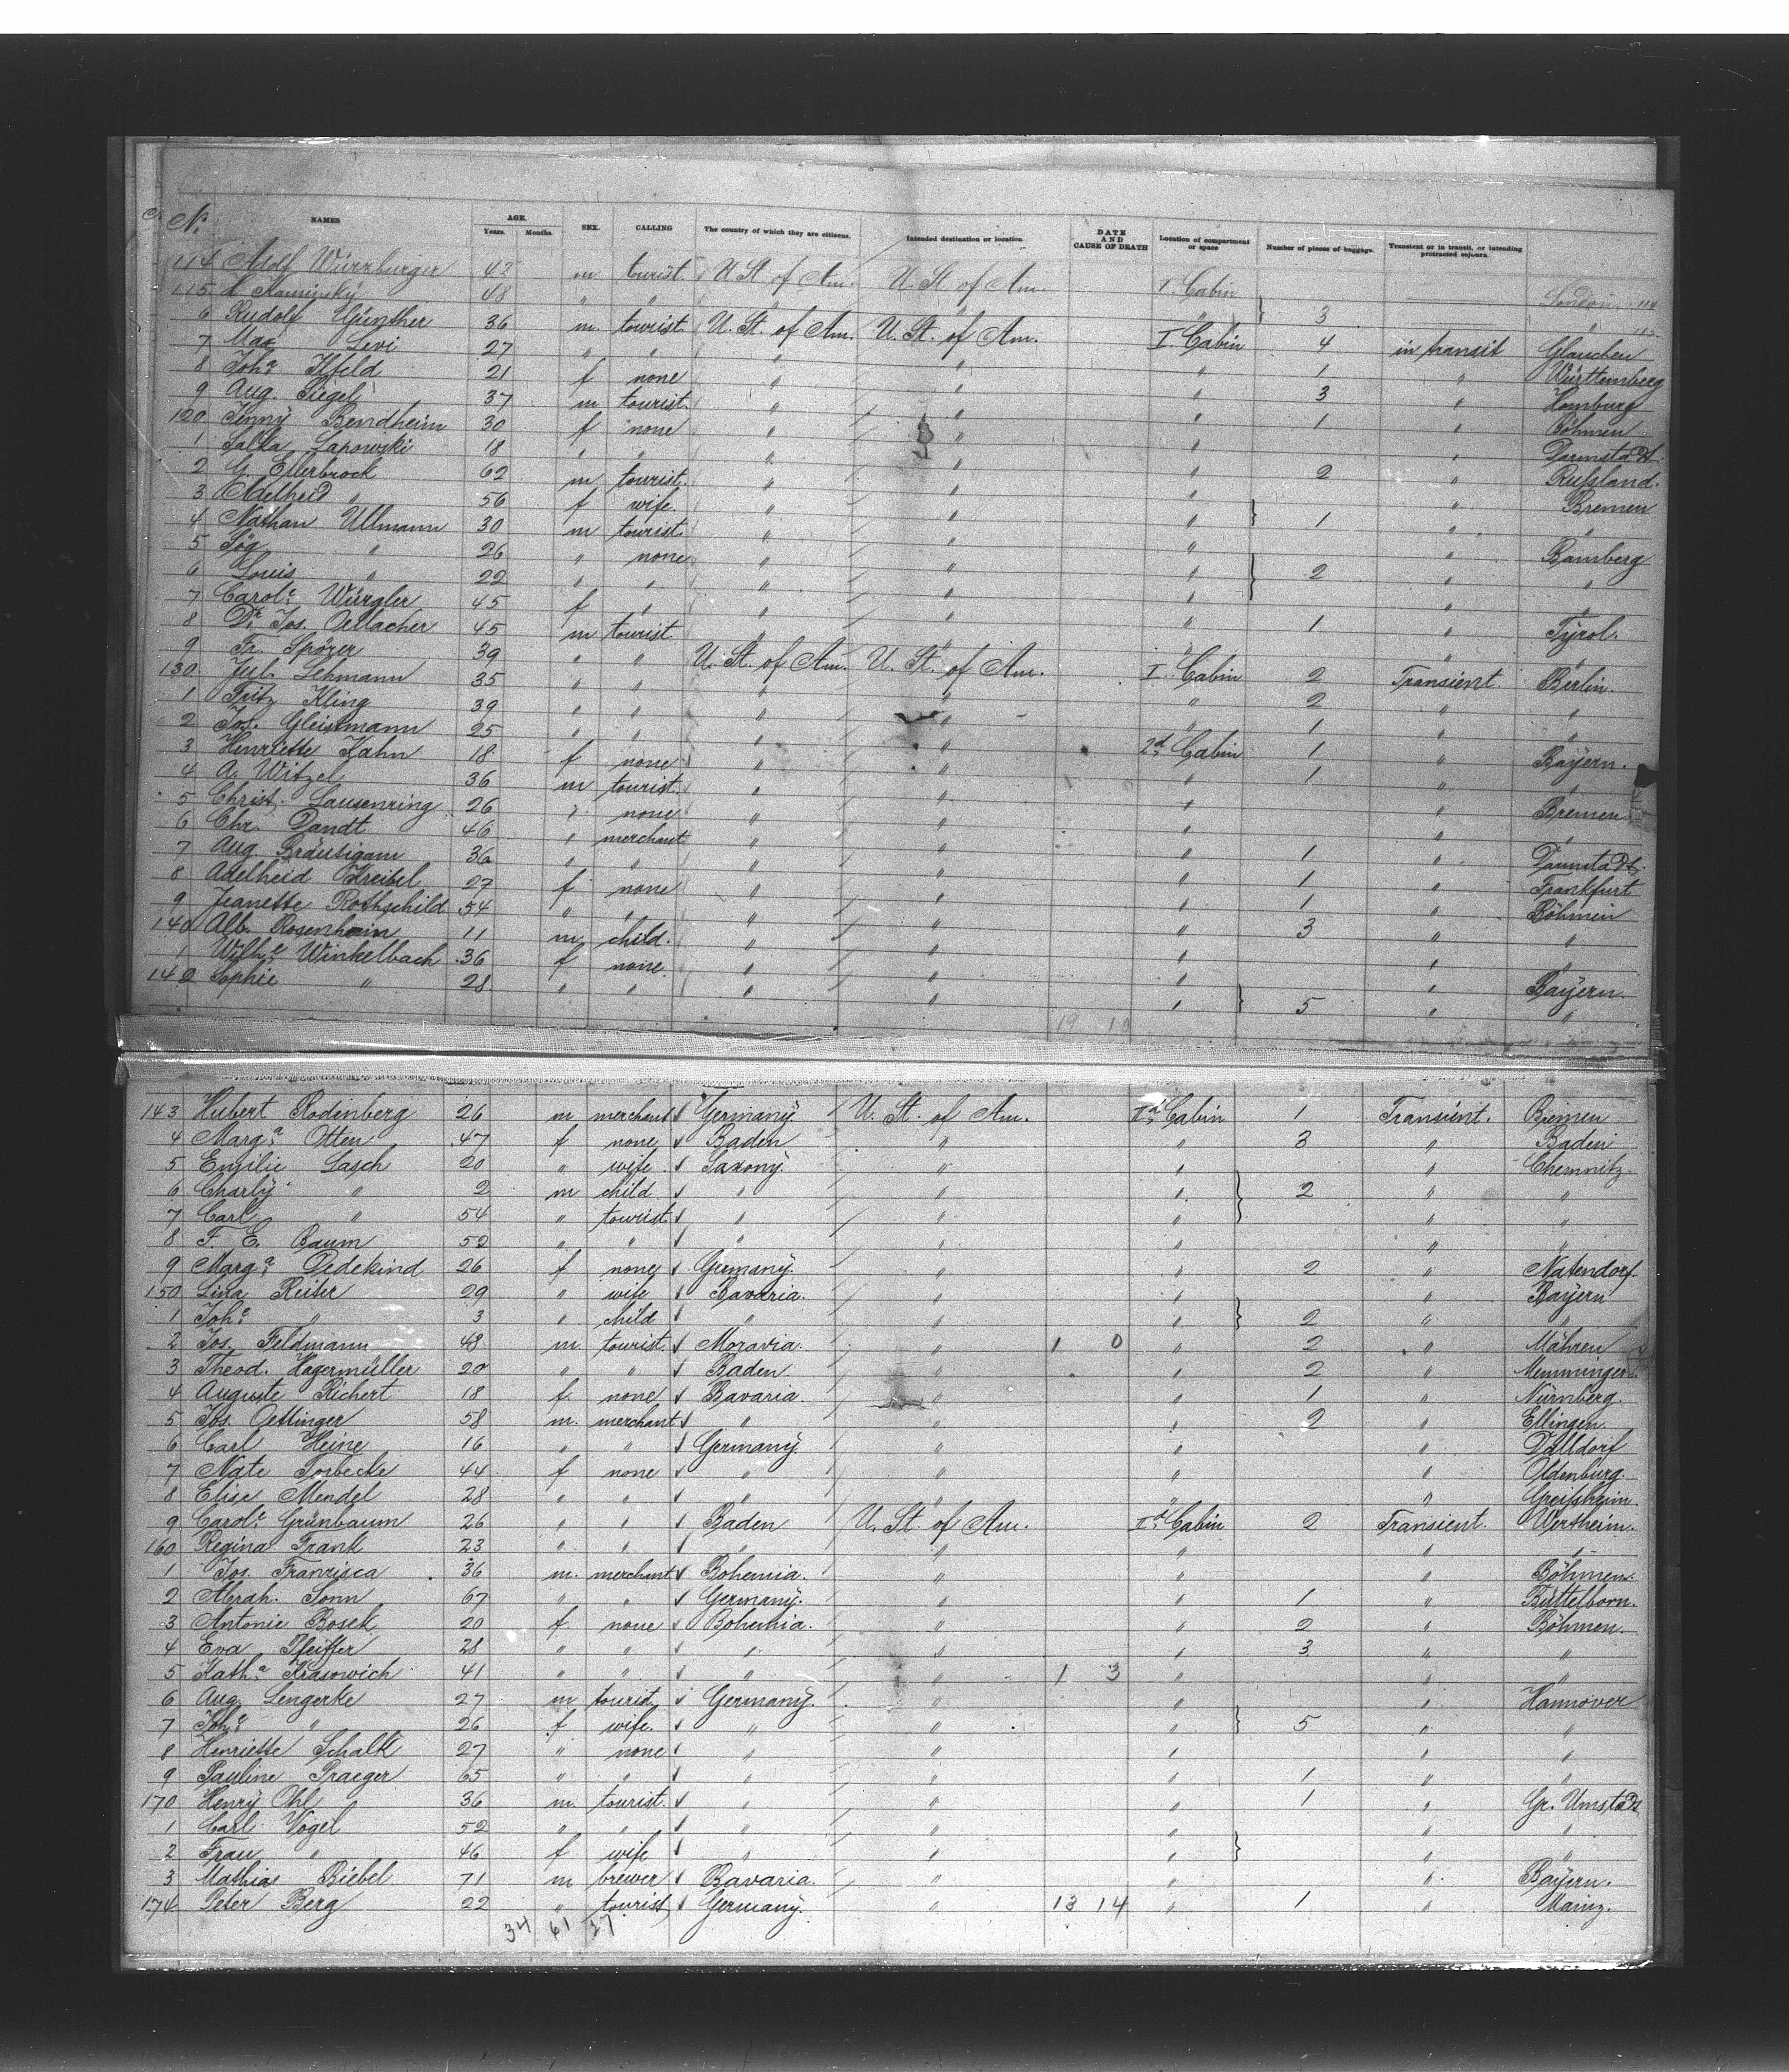 No. NAMES AGE. Years. Months. SEX. CALLING The country of which they are citizens. Intended destination or location. DATE AND CAUSE OF DEATH Location of compartment or space Number of pieces of baggage. Transient or in transit, or intending protracted sojourn.
114 Adolf Würzburger 42 m tourist U. St. of Am. U. St. of Am. I. Cabin London 114
115 Kaminsky 48 " " " " " } 3 " 115
6 Rudolf Günther 36 m. tourist. U. St. of Am. U. St. of Am. I. Cabin 4 in transit Glauchen
7 Max Levi 27 " " " " " 1 " Württemberg
8 Joha. Ilfeld 21 f none " " " 3 " Homburg
9 Aug. Siegel 37 m tourist. " " " 1 " Böhmen
120 Jenny Bendheim 30 f none " " " " Darmstadt
1 Salka Sapowski 18 " " " " " 2 " Rußland.
2 G. Ellerbrock 62 m tourist. " " " " Bremen
3 Adelheid " 56 f wife. " " " } 1 " "
4 Nathan Ullmann 30 m tourist. " " " " Bamberg
5 Sög " 26 " none " " " } 2 " "
6 Louis " 22 " " " " " " "
7 Carole. Würgler 45 f " " " " 1 Tyrol.
8 Dr. Jos. Oellacher 45 m tourist. " " " " "
9 Fr. Spörer 39 " " U. St. of Am. U. St. of Am. I. Cabin 2 Transient. Berlin.
130. Jul. Lehmann 35 " " " " " 2 " "
1 Fritz Kling 39 " " " " " 1 " "
2 Jos. Gleistmann 25 " " " " 2d. Cabin 1 " Bayern.
3 Henriette Kahn 18 f none " " " 1 " "
4 A. Witzel 36 m tourist. " " " " Bremen
5 Christ. Lausenring 26 " none " " " " "
6 Chr. Dandt 46 " merchant " " " 1 " Darmstadt.
7 Aug. Bräutigam 36 " " " " " 1 " Frankfurt
8 Adelheid Streibel 27 f none " " " 1 " Böhmen
9 Jeanette Rothschild 54 " " " " " 3 " "
140 Alb. Rosenheim 11 m child. " " " " "
1 Wilhe. Winkelbach 36 f none. " " " " Bayern.
142 Sophie " 28 " " " " " } 5 " "
19 10
143 Hubert Rodenberg 26 m merchant Germany. U. St. of Am. IId. Cabin 1 Transient. Bremen
4 Marga. Otten 47 f none Baden " " 3 " Baden
5 Emilie Lasch 20 " wife. Saxony. " " " Chemnitz.
6 Charly " 2 m child " " " } 2 " "
7 Carl " 54 " tourist " " " " "
8 F. E. Baum 52 " " " " " " "
9 Marga. Dedekind 26 f none Germany. " " 2 " Natendorf.
150 Lina Reiter 29 " wife Bavaria. " " " Bayern
1 Johe. " 3 " child " " " } 2 " "
2 Jos. Feldmann 48 m tourist. Moravia. " 1 0 " 2 " Mähren
3 Theod. Hagermüller 20 " " Baden " " 2 " Memmingen.
4 Auguste Richert 18 f. none Bavaria. " " 1 " Nürnberg.
5 Jos. Oettinger 58 m. merchant " " " 2 " Ellingen.
6 Carl Heine 16 " " Germany. " " " Dalldorf
7 Nate Torbecke 44 f none " " " " Oldenburg.
8 Elise Mendel 28 " " " " " " Greifsheim.
9 Carole. Grünbaum 26 " " Baden U. St. of Am. IId. Cabin 2 Transient. Wertheim.
160 Regina Frank 23 " " " " " " "
1 Jos. Franzisca 36 m. merchant Bohemia. " " " Böhmen.
2 Abrah. Sonn 67 " " Germany. " " 1 " Büttelborn.
3 Antonie Bosek 20 f none Bohemia. " " 2 " Böhmen.
4 Eva Pfeiffer 28 " " " " " 3 " "
5 Katha. Krasowich 41 " " " " 1 3 " " "
6 Aug. Lengerke 27 m tourist Germany. " " " Hannover
7 Johe. " 26 f wife. " " " } 5 " "
8 Henriette Schalk 27 " none " " " " "
9 Pauline Praeger 65 " " " " " 1 " "
170 Henry Ohl 36 m. tourist. " " " 1 " Gr. Umstadt
1 Carl Vogel 52 " " " " " " "
2 Frau " 46 f wife " " " } " "
3 Mathias Biebel 71 m brewer Bavaria. " " " Bayern.
174 Peter Berg 22 " tourist Germany. " 13 14 " 1 " Mainz.
34 61 27